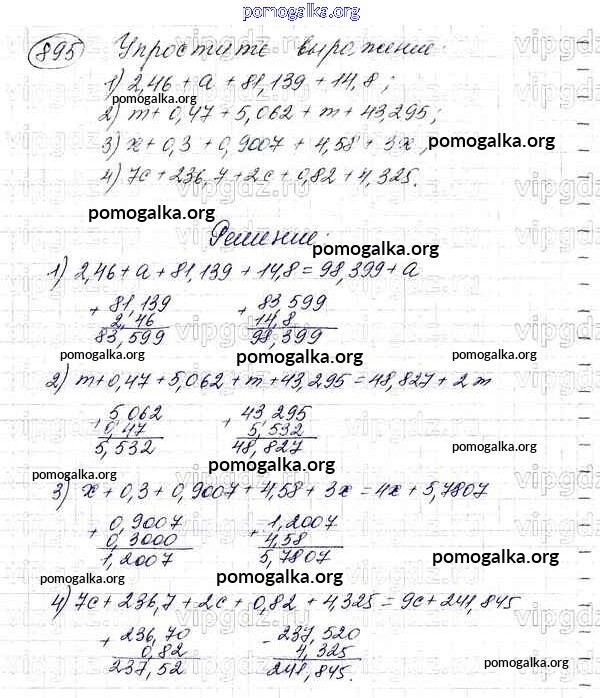 pomogalka.org
895 Упростите выражение:
1) 2,46 + a + 81,139 + 14,8;
pomogalka.org
2) m + 0,47 + 5,062 + m + 43,295;
3) x + 0,3 + 0,9007 + 4,58 + 3x;
pomogalka.org
4) 7c + 236,7 + 2c + 0,82 + 4,325.
pomogalka.org
Решение:
pomogalka.org
1) 2,46 + a + 81,139 + 14,8 = 98,399 + a
+ 81,139 + 83,599
2,46 14,8
83,599 98,399
pomogalka.org pomogalka.org
2) m + 0,47 + 5,062 + m + 43,295 = 48,827 + 2m
+ 5,062 + 43,295
0,47 5,532
5,532 48,827
pomogalka.org pomogalka.org
3) x + 0,3 + 0,9007 + 4,58 + 3x = 4x + 5,7807
+ 0,9007 + 1,2007
0,3000 4,58
1,2007 5,7807
pomogalka.org
pomogalka.org
4) 7c + 236,7 + 2c + 0,82 + 4,325 = 9c + 241,845
+ 236,70 - 237,520
0,82 4,325
237,52 241,845.
pomogalka.org
pomogalka.org